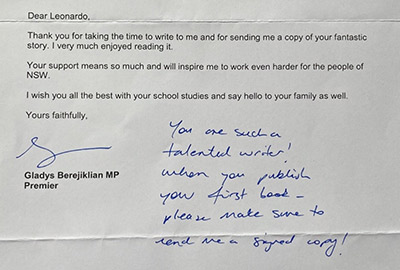 Dear Leonardo,
Thank you for taking the time to write to me and for sending me a copy of your fantastic
story. I very much enjoyed reading it.
Your support means so much and will inspire me to work even harder for the people of
NSW.
I wish you all the best with your school studies and say hello to your family as well.
Yours faithfully,
Gladys Berejiklian MP
Premier
You are such a
talented writer!
When you publish
your first book -
please make sure to
send me a signed copy!